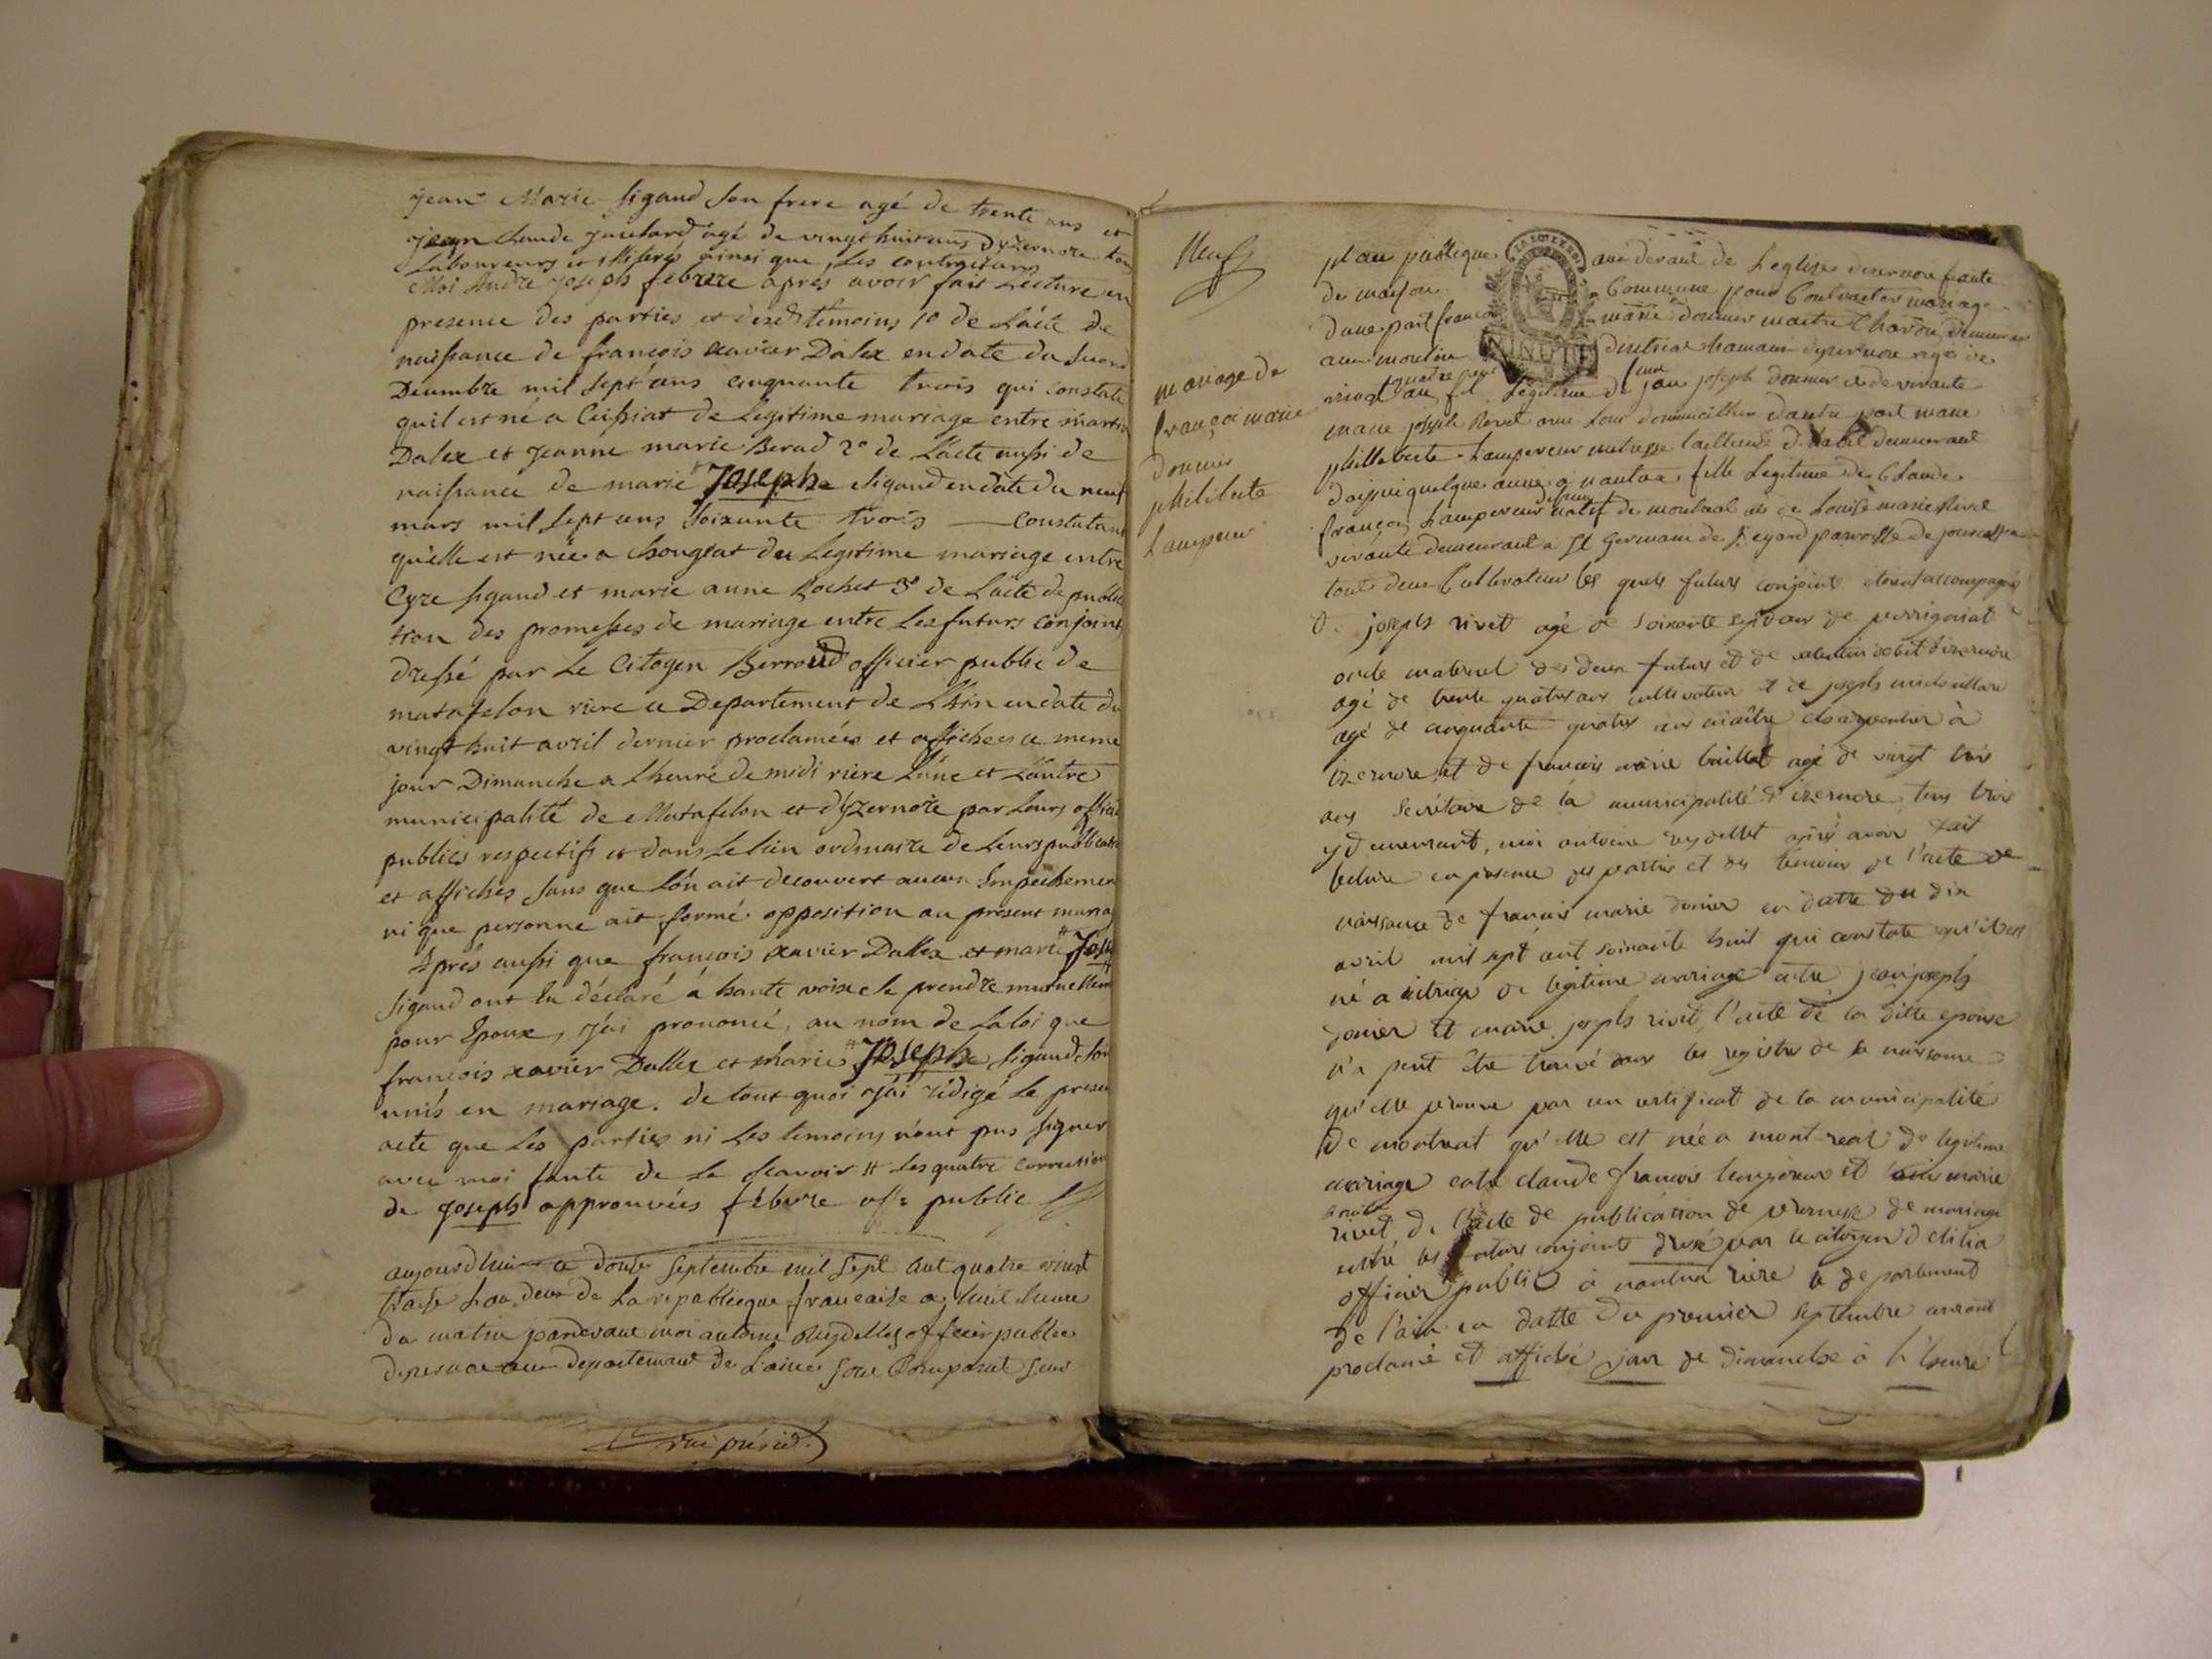 jean Marie sigaud son frere agé de trente ans et
jean claude gouilard agé de vingt huit ans d'yzernore tous
Laboureurs et illiterés ainsi que les contractans
Moi André joseph febvre après avoir fait Lecture en
presence des parties et desd temoins 1o de Lácte de
naissance de françois xavier Dalex en date du second
Decembre mil sept cens cinquante trois qui constate
quil est né a Ceissiat de Legitime mariage entre martin
Dalex et jeanne marie Berad 2o de Lácte aussi de
naissance de marie Josephe sigaud en date du neuf
mars mil sept cens soixante trois — constatant
qu'elle est née a chougeat de Legitime mariage entre
Cyre sigaud et marie anne Rochet 3o de Lácte de publica
tion des promesses de mariage entre Les futurs conjoints
dressé par Le Citoyen Berroud officier public de
matafelon riere ce Departement de L'Ain en date du
vingt huit avril dernier proclamées et affichées ce meme
jour Dimanche a L'heure de midi riere L'une et L'autre
municipalité de Matafelon et d'yzernore par Leurs officiers
publics respectifs et dans Le lieu ordinaire de Leurs publications
et affiches sans que L'ón ait decouvert aucun Empechement
ni que personne ait formé opposition au présent mariage
Après aussi que françois xavier Dallex et marie Josephe
sigaud ont eu déclaré á haute voix se prendre mutuellement
pour Epoux, j'ai prononcé, au nom de La loi que
francois xavier Dallex et marie Josephe sigaud sont
unis en mariage. de tout quoi j'ái rédigé Le present
acte que Les parties ni Les temoins n'ont pas signer
avec moi faute de Le scavoir # Les quatre corrections
de joseph approuvées fébvre off: public
aujourdhui ce douze septembre mil sept cent quatre vingt
treize Lan deux de La republicque francaise a huit heure
du matin pardevant moi antoine Reydellet officier public
dizernore au departement de Lain sont Comparut sur
vu président
Neuf
mariage de
françoi marie
dounier
philiberte
Lampereur
plau publique au devant de Leglise dizernore faute
de maison Commune pour Contracter mariage
dune part francoi marie dounier maitre Charon demeurant
au moulin agé de
vingt quatre ans fil Legitime de feu jan joseph dounier et de vivante
marie joseph Rivet dautre part marie
philliberte Lampereur demeurant
depuis quelque année a nantua fille Legitime de Claude
françois Lampereur natif de montreal et de Louise marie Rivet
vivante demeurant a St germain de Beyard parroisse de
tous deux Cultivateur les quels futurs conjoint étoient accompagnés
de joseph rivet agé de soixante sept ans de perrignat
oncle maternel des deux futurs et de d'izernore
agé de trente quatre ans cultivateur et de joseph
agé de cinquante quatre ans maître charpentier à
izernore et de francois marie baillet agé de vingt trois
ans secrétaire de la municipalité d'izernore tous trois
y demeurant, moi antoine reydellet après avoir fait
lecture en presence des parties et des temoins de l'acte de
naissance de francois marie donier en datte du dix
avril mil sept cent soixante huit qui constate qu'il est
né a de légitime mariage entre jean joseph
donier et marie joseph rivet, l'acte de la ditte epouse
n'a peut être trouvé dans les registres de sa naissance
qu'elle prouve par un certificat de la municipalité
de montreal qu'elle est née a mont-real de légitime
mariage entre claude francois lempereur et marie
rivet, de l'acte de publication de promesse de mariage
entre les futurs conjoints dressé par le citoyen delilia
officier public à nantua riere le departement
de l'ain en datte du premier septembre
proclamé et affiché jour de dimanche à l'heure